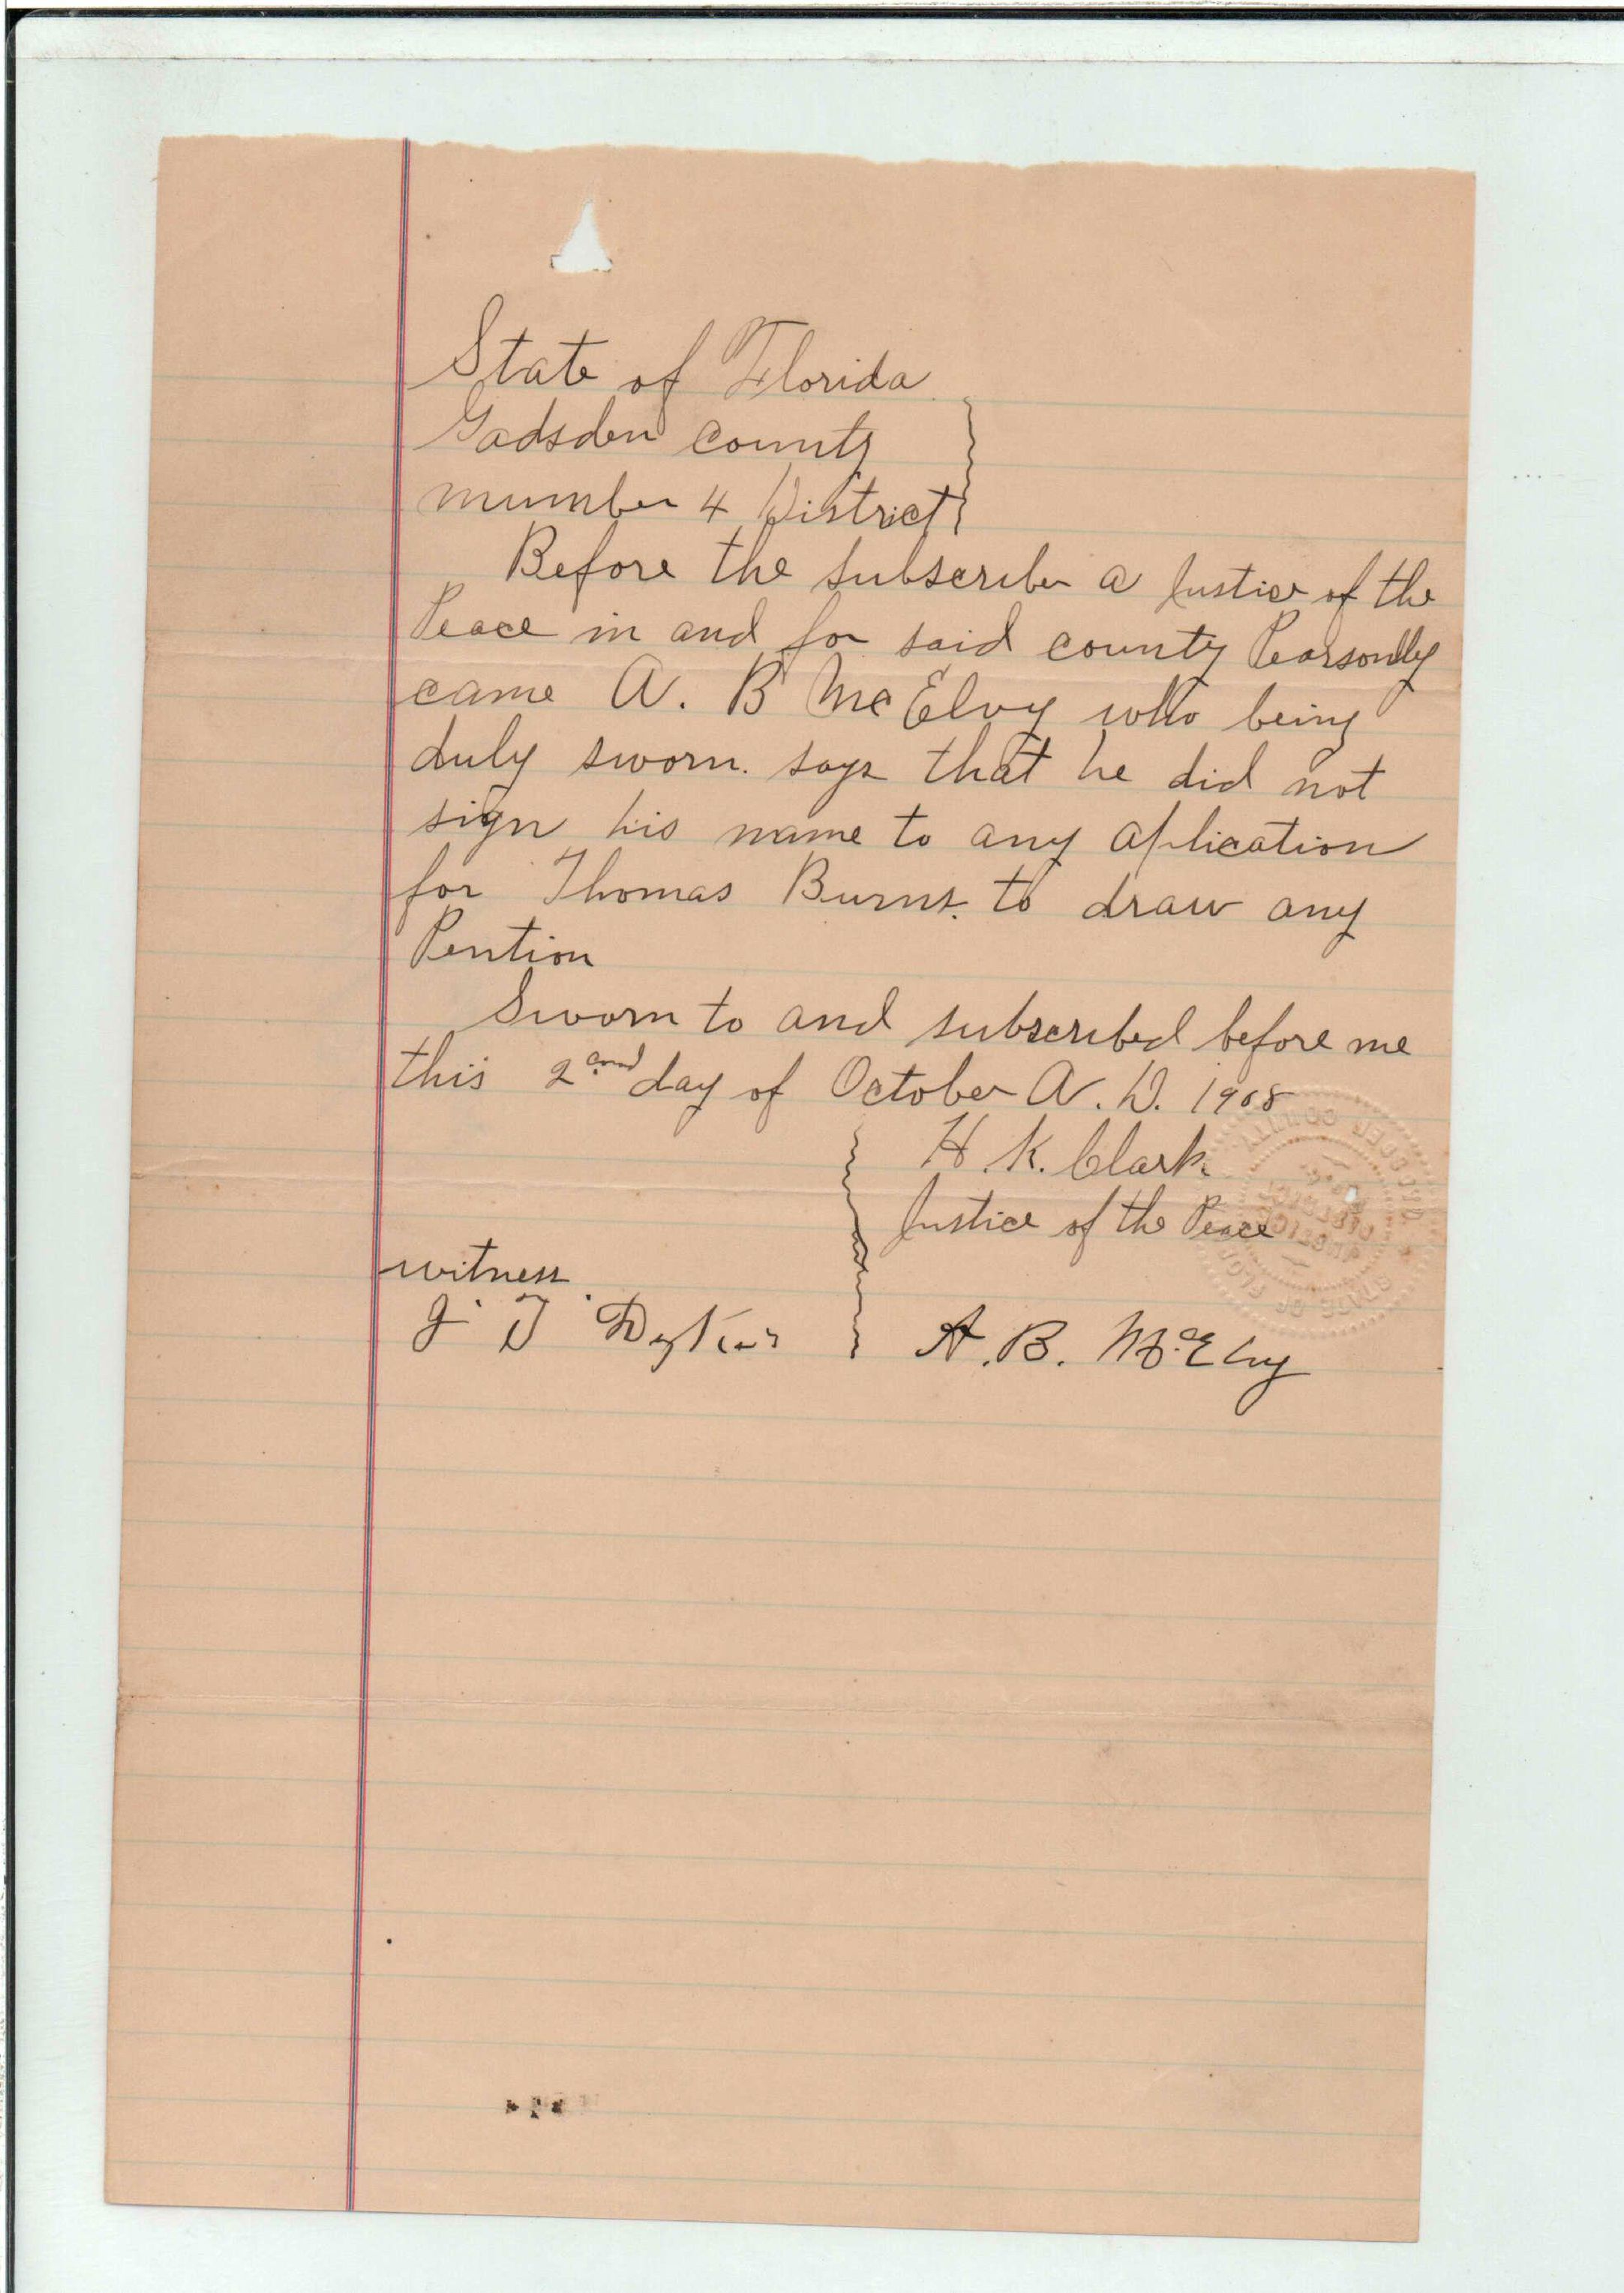 State of Florida
Gadsden county
number 4 District
Before the subscriber a Justice of the
Peace in and for said county Pearsonlly
came A. B McElvy who being
duly sworn. says that he did not
sign his name to any aplication
for Thomas Burns. to draw any
Pention
Sworn to and subscribed before me
this 2ond day of October A. D. 1908
H. K. Clark.
Justice of the Peace
witness
J. T. Dykes
A. B. McElvy
GADSDEN COUNTY
STATE OF FLOR